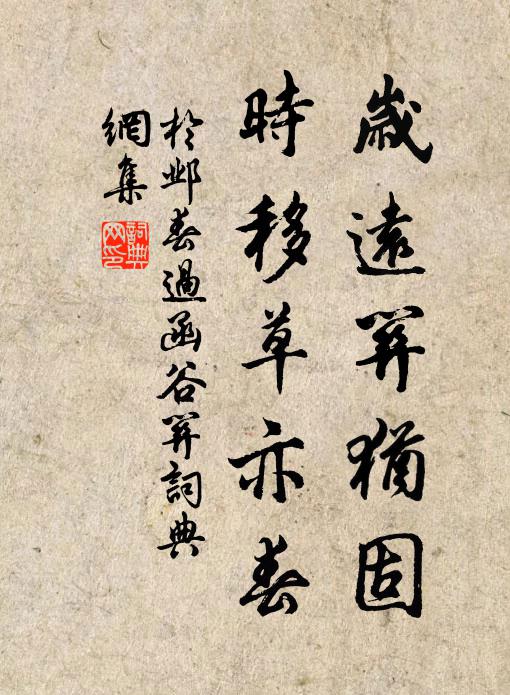 歲遠關猶固
時移草亦春
於鄴春過函谷關詞典
網集
詞典
网印